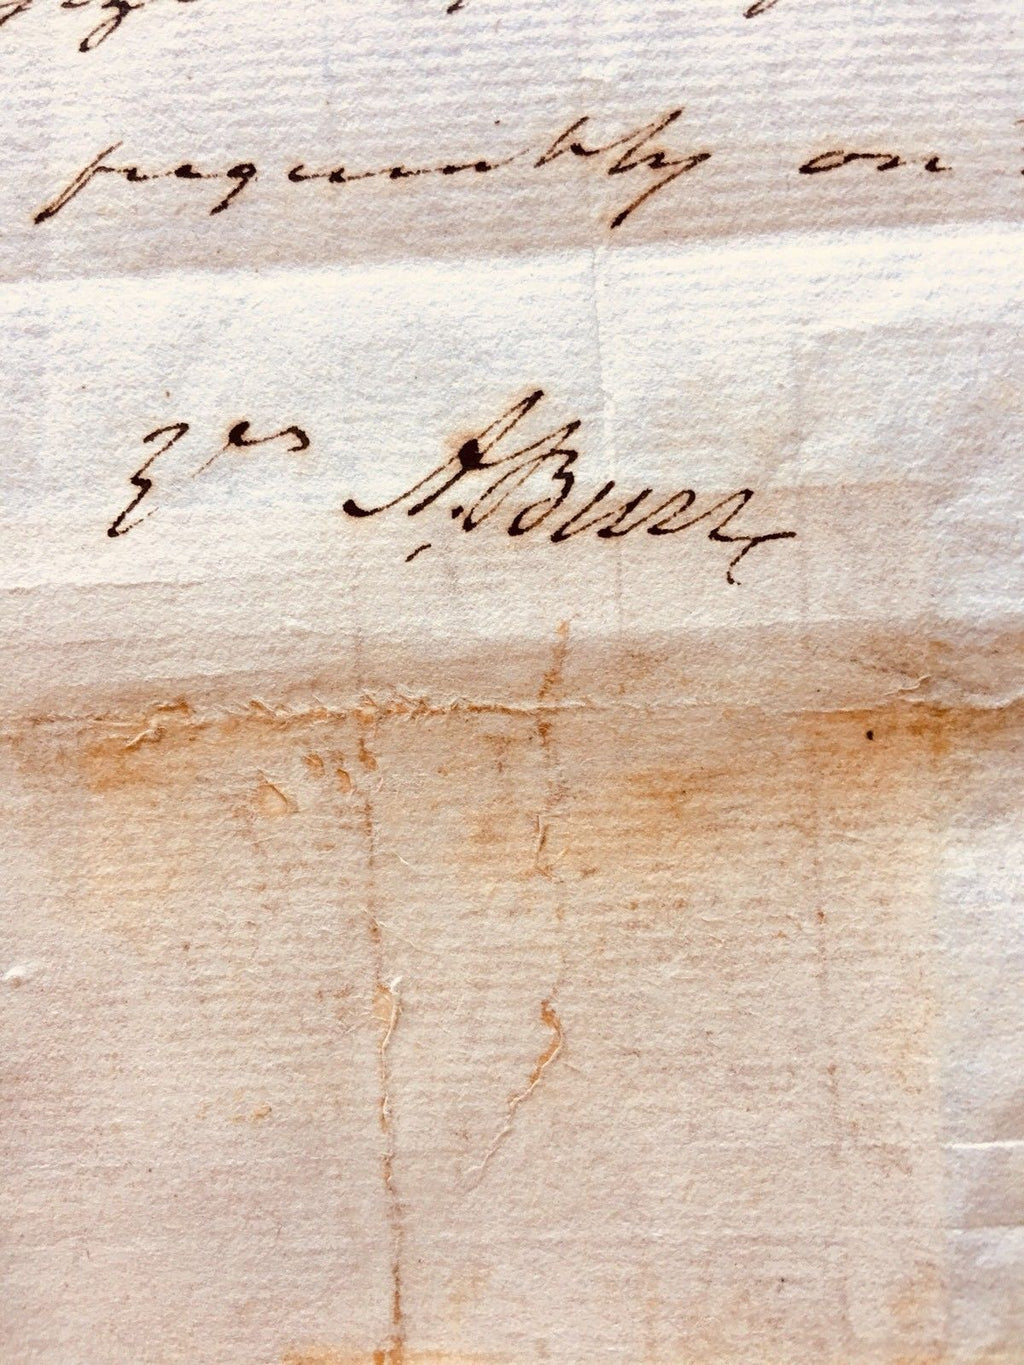 frequently on
Yrs A. Burr